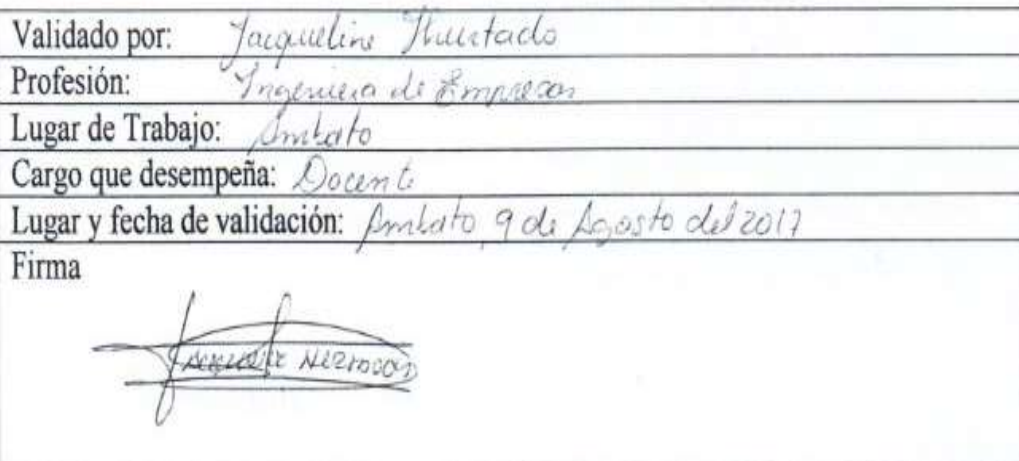 Validado por: Jacqueline Hurtado
Profesión: Ingeniera de Empresas
Lugar de Trabajo: Ambato
Cargo que desempeña: Docente
Lugar y fecha de validación: Ambato, 9 de Agosto del 2017
Firma